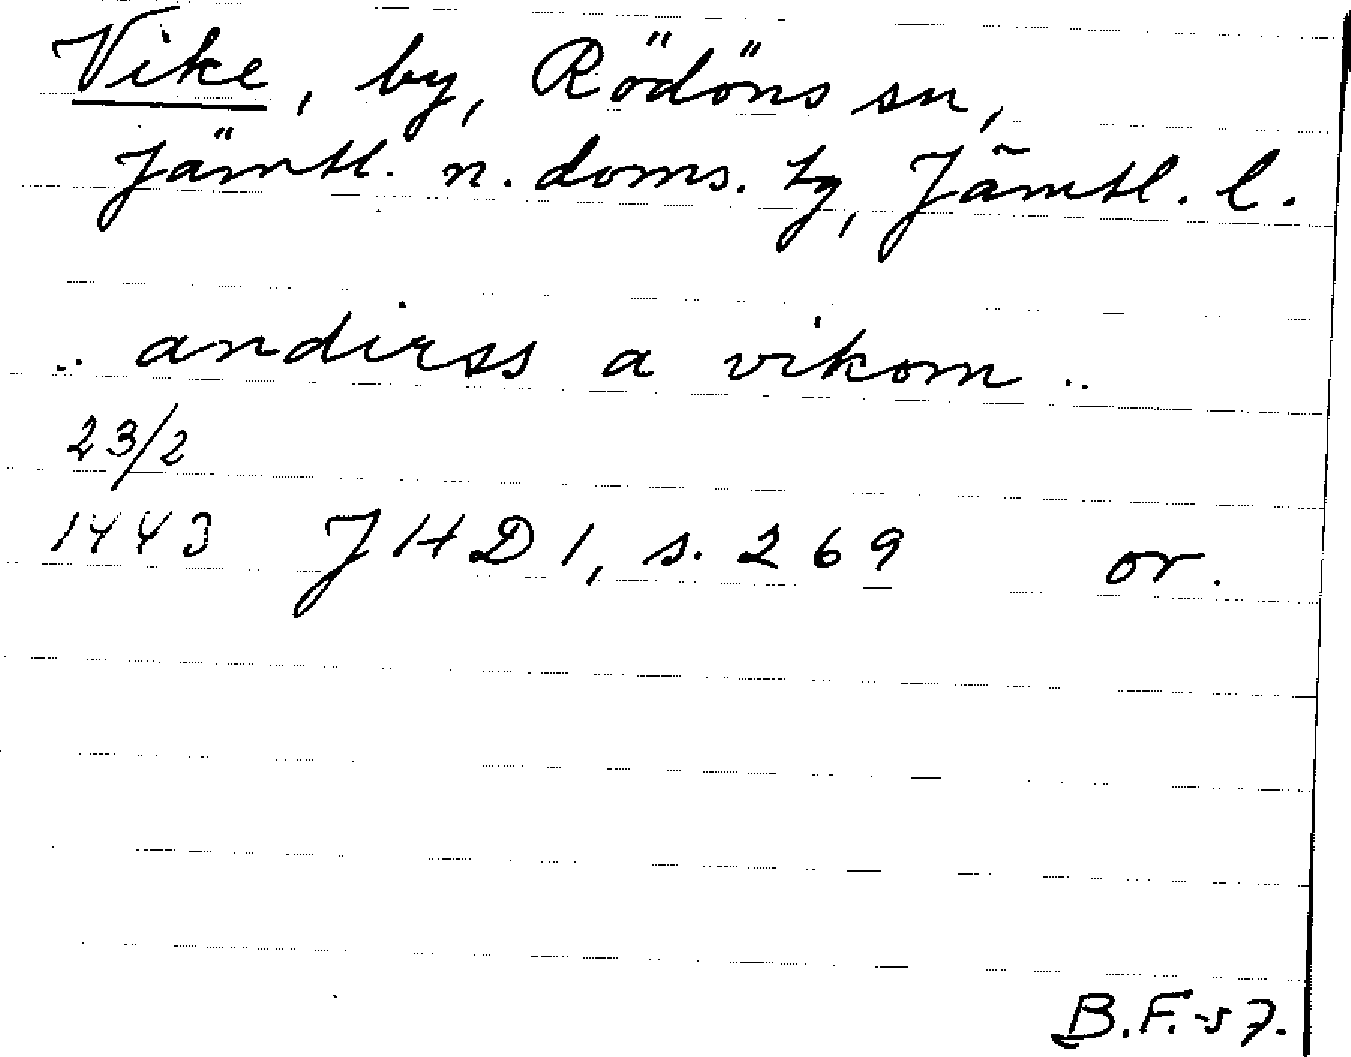 Vike, by, Rödöns sn,
Jämtl. n. doms. tg, Jämtl. l.
.. andirss a vikom ..
23/2
1443 JHD 1, s. 269 or.
B.F.-57.